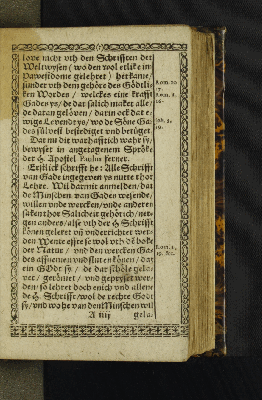 love nicht vth den Schrifften der
Weltwysen / wo den wol etlike im
Pawestdome gelehret) herkame /
sünder vth dem gehöre des Gödtli-
ken Wordes / welckes eine krafft
Gades ys / de dar salich maket alle /
de daran gelöven / darin ock dat e-
wige Levende ys / wo de Söne Ga-
des sülvest bestediget vnd betüget.
Dat nu dit warhafftich wahr sy /
bewyset in angetagenem Spröke
der H. Apostel Paulus ferner.
Erstlick schrifft he: Alle Schrifft
van Gade ingegeven ys nutte thor
Lehre. Wil darmit anmelden / dat
de Minschen van Gades
willen vnde wercken / vnde anderen
saken thor Salicheit gehörich / ner-
gen anders / alse vth der H. Schrifft
können geleret vñ vnderrichtet wer-
den
der Natur / vnd den wercken Ga-
des affnemen vnd können / dat
ein GOdt sy / de dar schöle gelo-
vet / geröniet / vnd gepryset wer-
den: so lehret doch enich vnd allene
de H. Schrifft / wol de rechte Godt
sy / vnd wo he van den Minschen wil
A iiij
gela-
Rom. 10
17.
Rom. 1.
16.
Joh. 5.
39.
Rom. 1.
19.